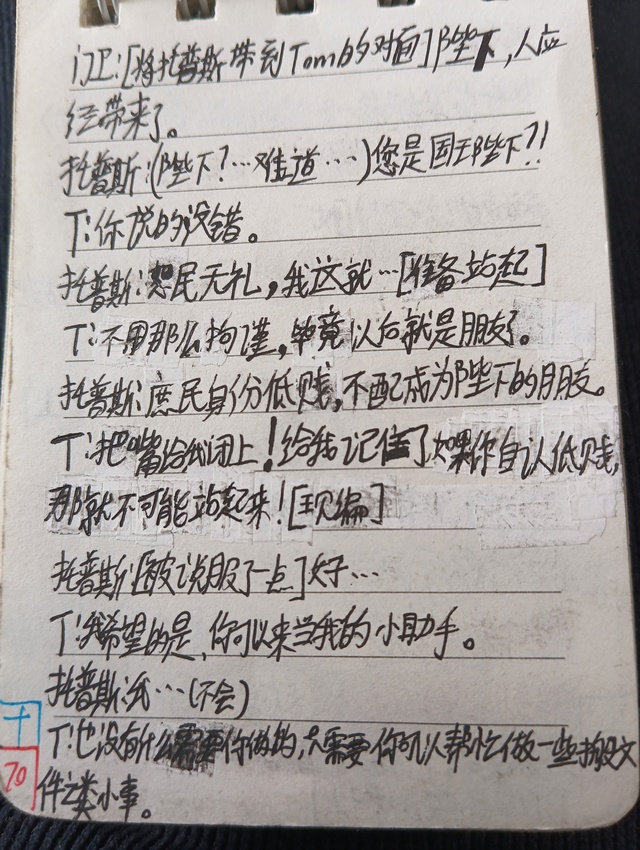 门卫:[将托普斯带到Tom的对面]陛下,人应
经带来了。
托普斯:(陛下?…难道…)您是国王陛下?!
T:你说的没错。
托普斯:恕民无礼,我这就…[准备站起]
T:不用那么拘谨,毕竟以后就是朋友了。
托普斯:庶民身份低贱,不配成为陛下的朋友。
T:把嘴给我闭上!给我记住了如果你自认低贱,
那就不可能站起来![现编]
托普斯:[被说服了一点]好…
T:我希望的是,你可以来当我的小助手。
托普斯:我…(不会)
T:也没有什么需要你做的,只需要你可以帮忙做一些搬文
件之类小事。
十
70